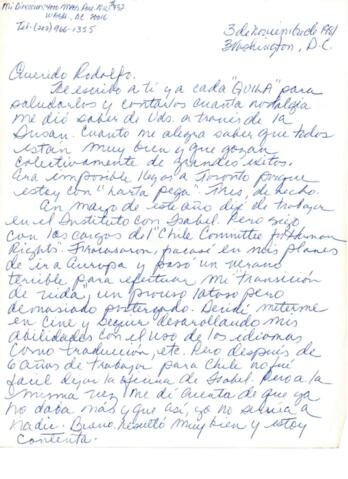 Mi Direccion: 4000 Mass. Ave. N.W. #
Wash. DC 20016
Tel: (202) 966-1355
3 de noviembre de 1981
Washington, D.C.
Querido Rodolfo.
Te escribo a ti y a cada "QUILA" para
saludarlos y contarlos cuanta nostalgia
me dió saber de Uds. a través de la
Susan. Cuanto me alegra saber que todos
estan muy bien y que gozan
colectivamente de grandes exitos.
Era imposible llegar a Toronto porque
estoy con "harta pega". Tres, de hecho.
En marzo de este año dejé de trabajar
en el Instituto con Isabel. Pero sigo
con los cargos del "Chile Committee for Human
Rights". Fracasaron, fracasé en mis planes
de ir a Europa y pasó un verano
terible para efectuar mi transición
de vida, un proceso latoso pero
demasiado postergado. Decidí meterme
en Cine y seguir desarollando mis
abilidades con el uso de los idiomas
como traducción, etc. Pero después de
6 años de trabajar para Chile no fué
facil dejar la oficina de Isabel. Pero a la
misma vez, me dí cuenta de que ya
no daba más y que así, yo no servía a
nadie. Bueno. Resultó muy bien y estoy
contenta.